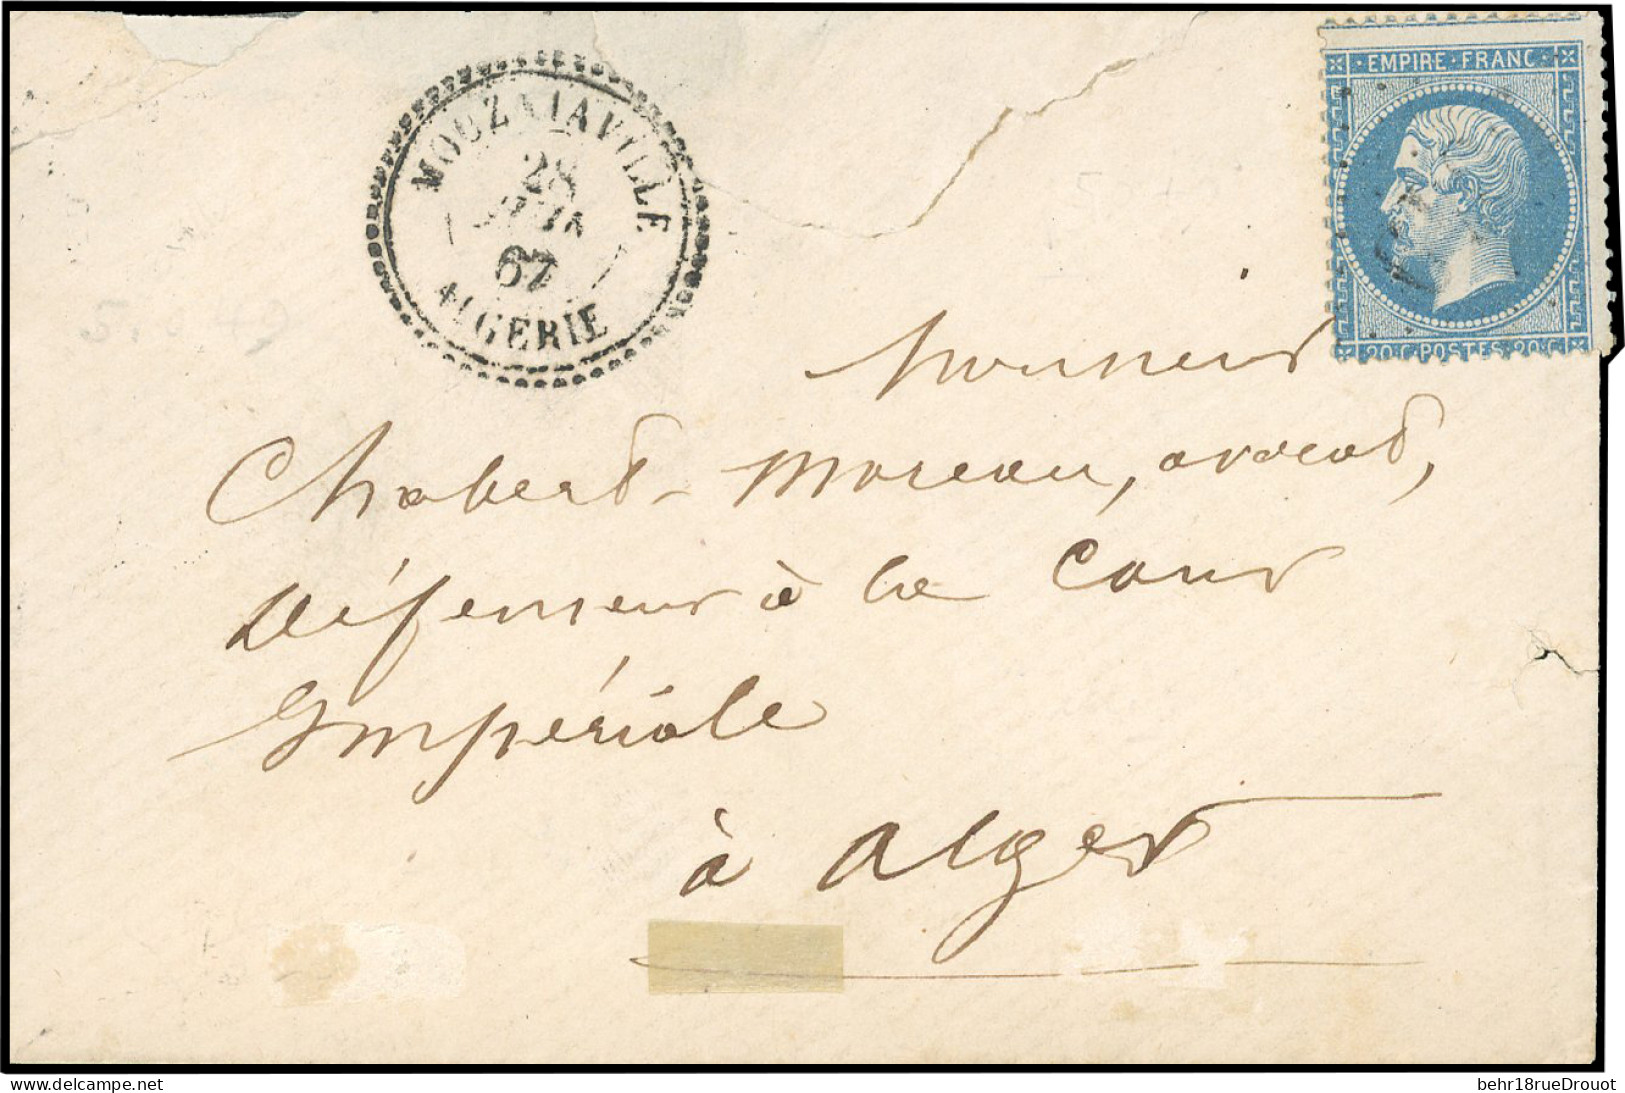 MOUZAIAVILLE
28
JUIN
67
ALGERIE
EMPIRE · FRANC ·
20 C POSTES 20 C
Monsieur
Chabert-Moreau, avocat,
Défenseur à la Cour
Impériale
à Alger
delcampe.net
behr18rueDrouot